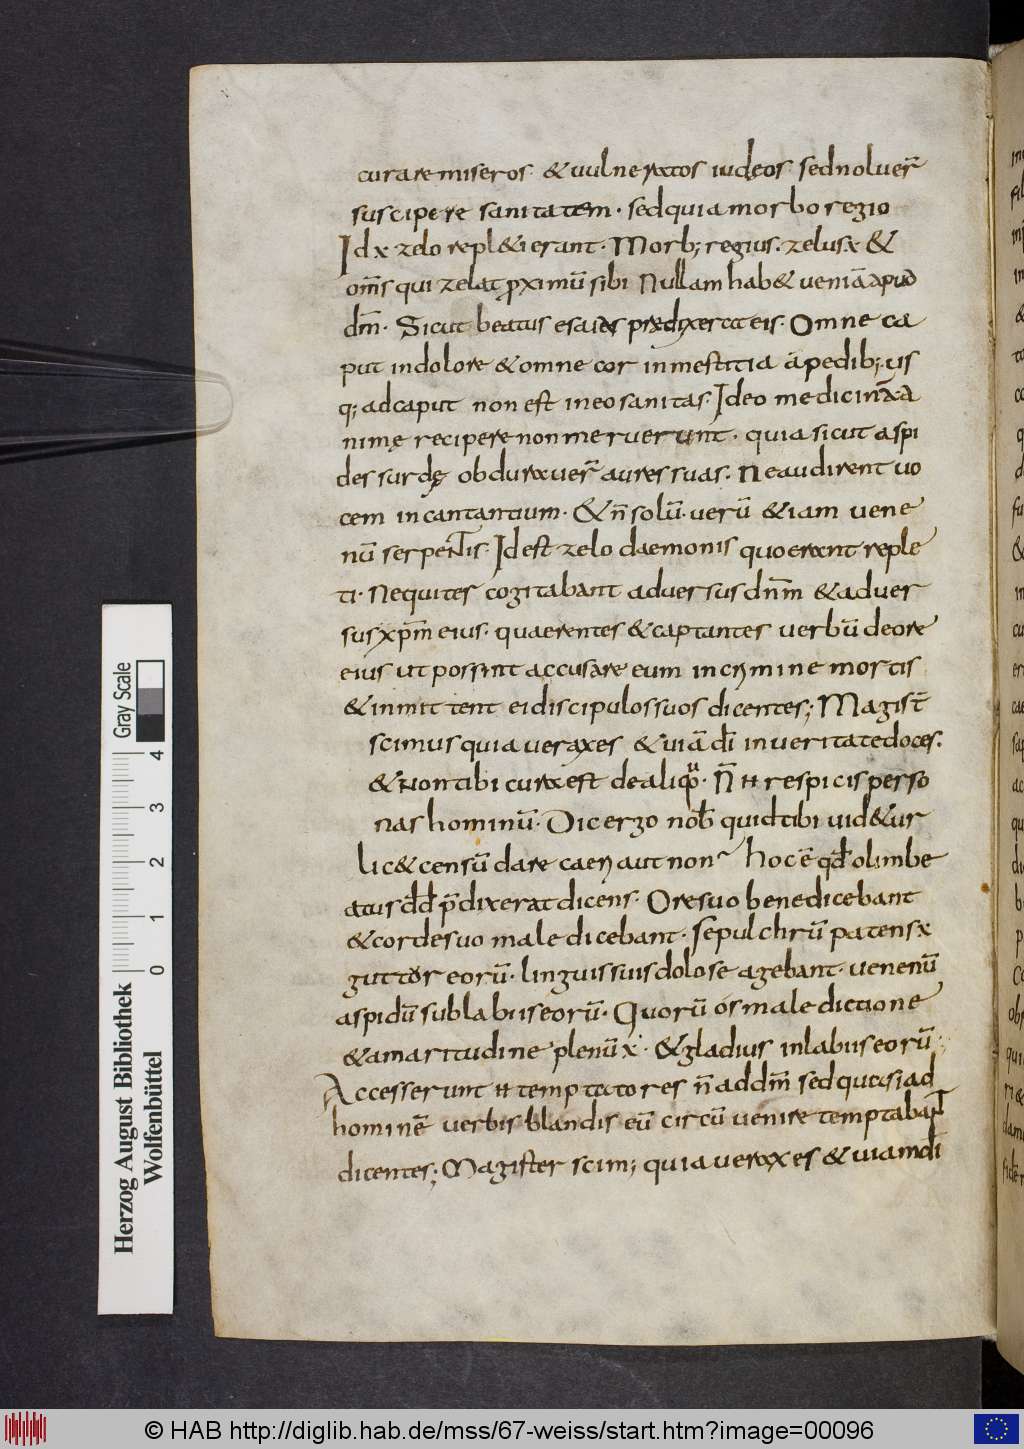 curare miseros · & uulneratos iudeos sed noluer̄
suscipere sanitatem · sed quia morbo regio
Id x · zelo repl&i erant · Morb; regius · zelus x &
om̄s qui zelat ꝓximū sibi Nullam hab& veniā apud
dm̄ · Sicut beatus esaias prædixerat eis · Omne ca
put in dolore & omne cor in mestitia a pedib; us
q; ad caput non est in eo sanitas · Ideo medicinā xā
nimę recipere non meruerunt · quia sicut aspi
des surdę obduraver̄ aures suas · Ne audirent uo
cem incantantium · & n̄ solū · verū & iam vene
nū serpentis · Id est zelo daemonis quo erant reple
ti · Nequites cogitabant adversus dn̄m & adver
sus xp̄m eius · quaerentes & captantes verbū de ore
eius ut possint accusare eum in crimine mortis
& inmittent ei discipulos suos dicentes; Magist̄
scimus quia verax es & uiā dī in veritate doces ·
& non tibi cura est de aliq° · N̄ respicis perso
nas hominū · Dic ergo nob̄ quid tibi uid&ur
lic& censū dare caeri aut non · hoc ē qd̄ olim be
atus dd̄ p̄dixerat dicens · Ore suo benedicebant
& corde suo maledicebant · sepulchrū patens x
guttor eorū · linguis suis dolose agebant · venenū
aspidū sub labiis eorū · Quorū os maledictione
& amaritudine plenū x · & gladius in labiis eorū
Accesserunt temptatores n̄ ad dm̄ sed quasi ad
hominē verbis blandis eū circū venire temptabant
dicentes; Magister scim; quia verax es & uiam dī
Gray Scale
0 1 2 3 4
Herzog August Bibliothek
Wolfenbüttel
© HAB http://diglib.hab.de/mss/67-weiss/start.htm?image=00096